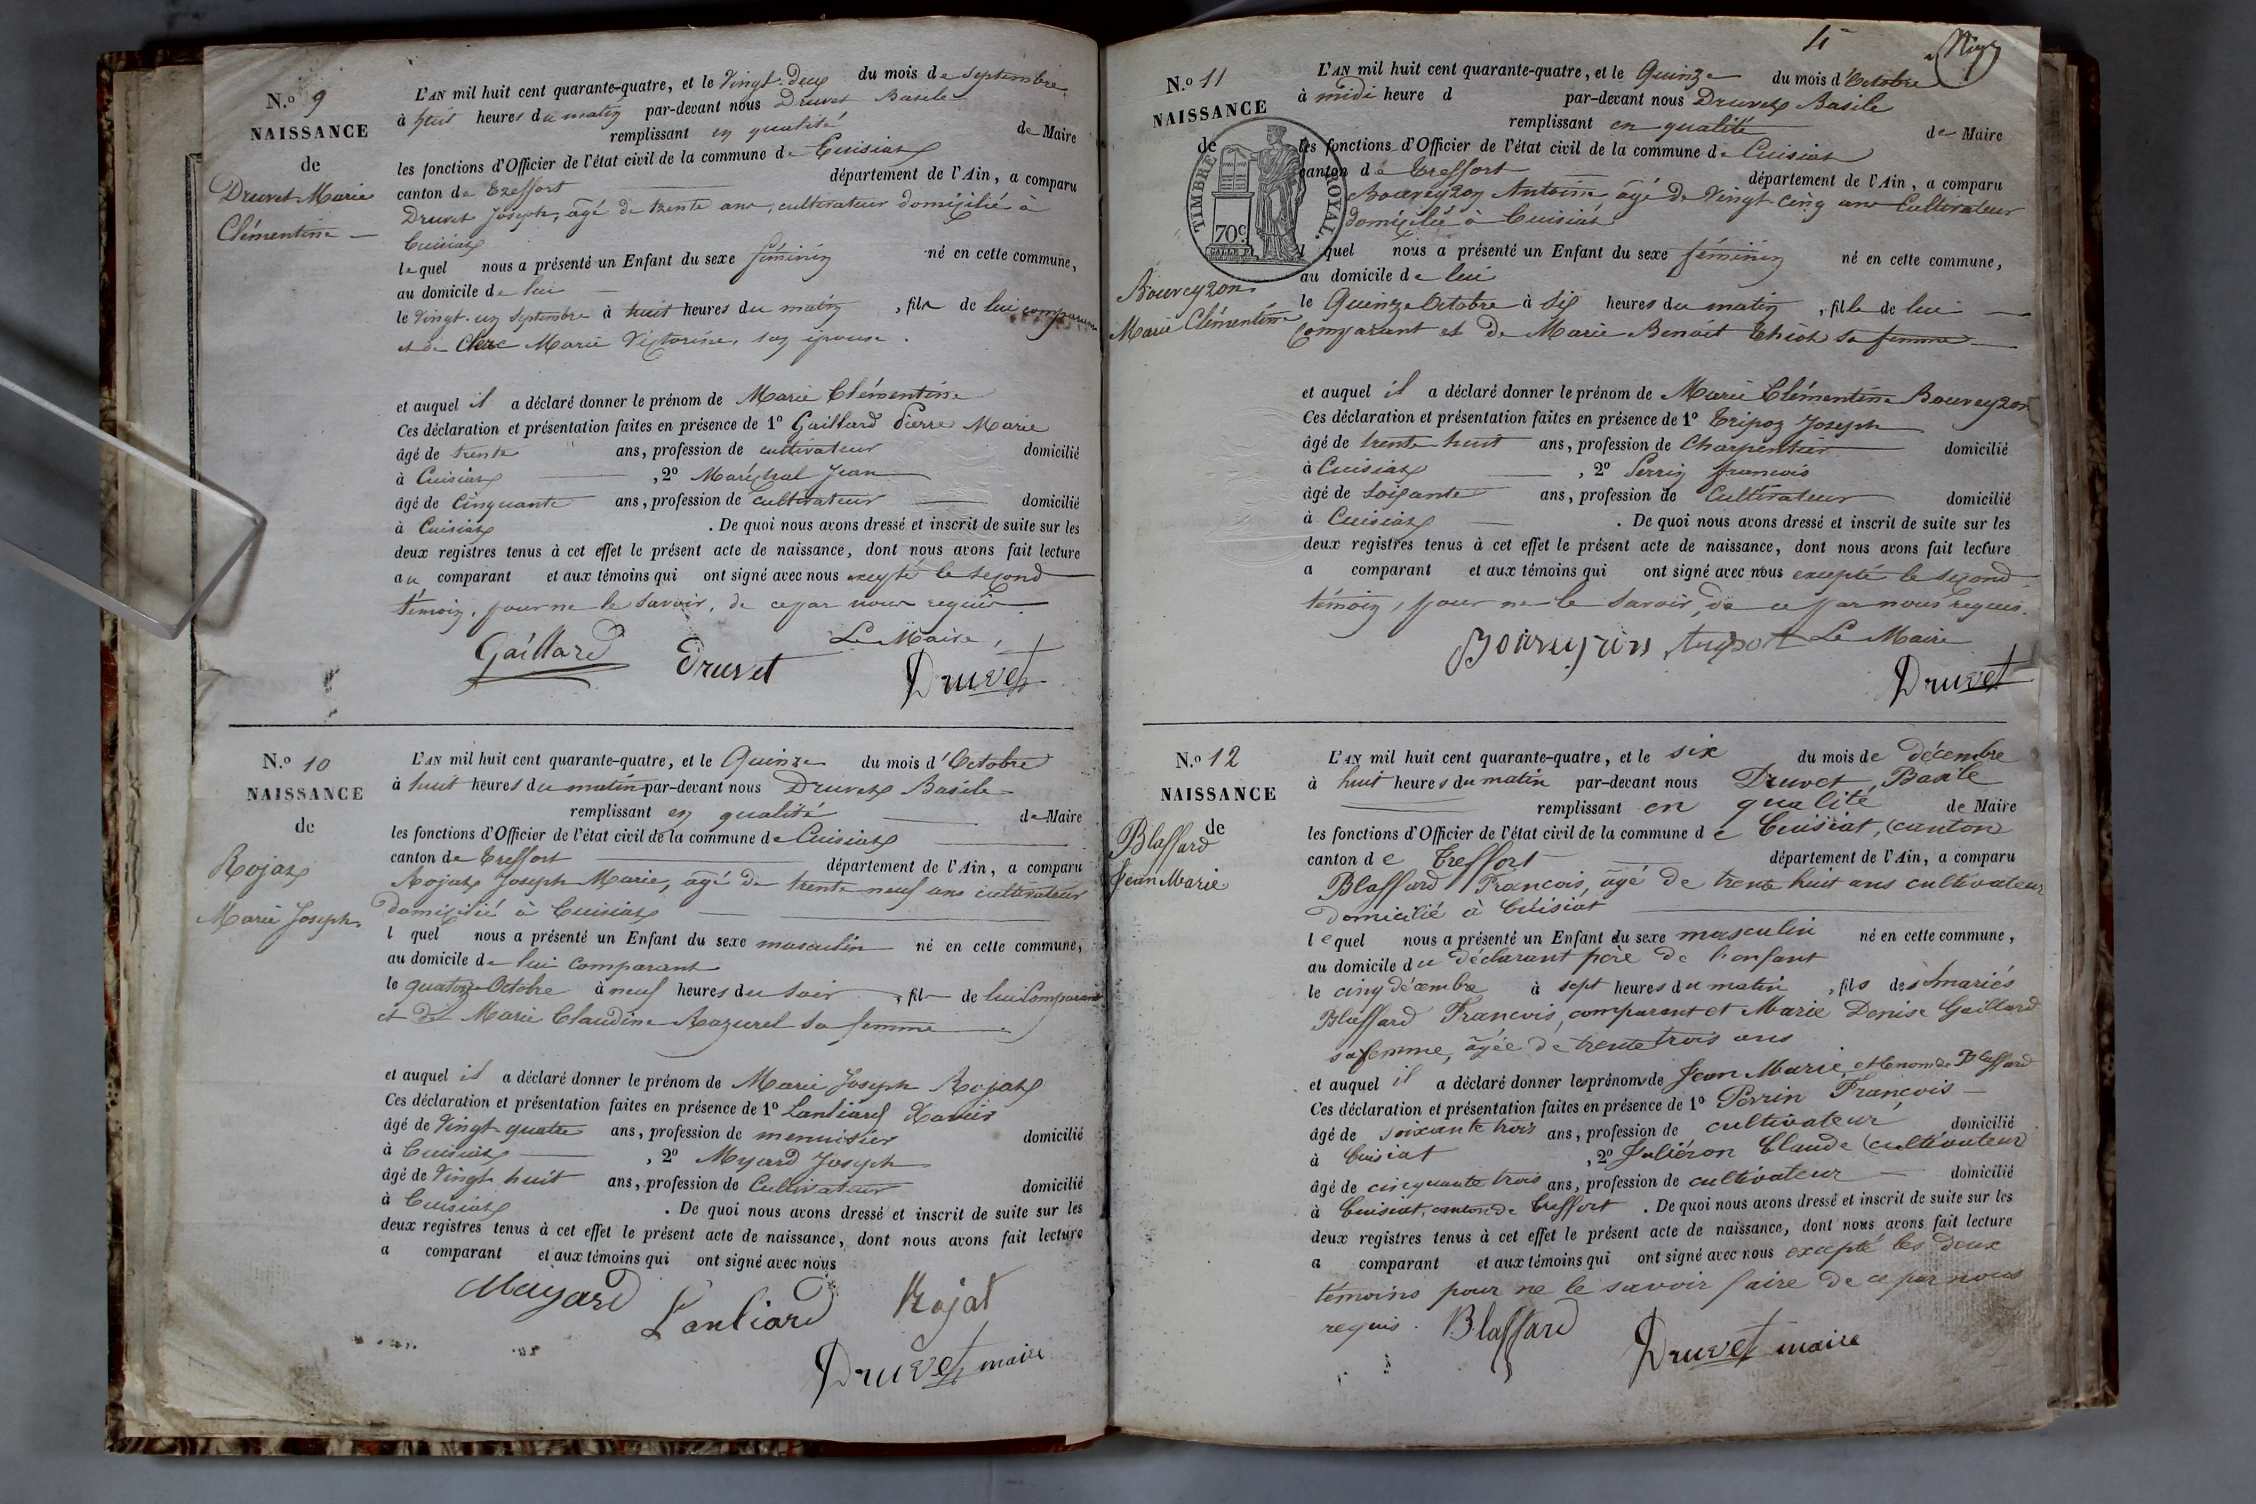 N.o 9
NAISSANCE
de
Druvet Marie
Clémentine
L'AN mil huit cent quarante-quatre, et le Vingt-Deux du mois de Septembre
à huit heures du matin par-devant nous Druvet Basile
remplissant en qualité de Maire
les fonctions d'Officier de l'état civil de la commune de Cuisiat
canton de Treffort département de l'Ain, a comparu
Druvet Joseph, âgé de trente ans, cultivateur domicilié à
Cuisiat
lequel nous a présenté un Enfant du sexe féminin né en cette commune,
au domicile de lui
le Vingt-un Septembre à huit heures du matin, fils de lui comparant
et de Clerc Marie Victorine, son épouse.
et auquel il a déclaré donner le prénom de Marie Clémentine
Ces déclaration et présentation faites en présence de 1o Gaillard Pierre Marie
âgé de trente ans, profession de cultivateur domicilié
à Cuisiat, 2o Maréchal Jean
âgé de Cinquante ans, profession de cultivateur domicilié
à Cuisiat. De quoi nous avons dressé et inscrit de suite sur les
deux registres tenus à cet effet le présent acte de naissance, dont nous avons fait lecture
au comparant et aux témoins qui ont signé avec nous excepté le second
témoin, pour ne le savoir, de ce par nous requis
Le Maire,
Gaillard Druvet Druvet
N.o 10
NAISSANCE
de
Rojat
Marie Joseph
L'AN mil huit cent quarante-quatre, et le Quinze du mois d'Octobre
à huit heures du matin par-devant nous Druvet Basile
remplissant en qualité de Maire
les fonctions d'Officier de l'état civil de la commune de Cuisiat
canton de Treffort département de l'Ain, a comparu
Rojat Joseph Marie, âgé de trente neuf ans cultivateur
domicilié à Cuisiat
l quel nous a présenté un Enfant du sexe masculin né en cette commune,
au domicile de lui comparant
le quatorze Octobre à neuf heures du soir, fil de lui Comparant
et de Marie Claudine Razurel sa femme
et auquel il a déclaré donner le prénom de Marie Joseph Rojat
Ces déclaration et présentation faites en présence de 1o Lanliard Xavier
âgé de Vingt quatre ans, profession de menuisier domicilié
à Cuisiat, 2o Myard Joseph
âgé de Vingt huit ans, profession de Cultivateur domicilié
à Cuisiat. De quoi nous avons dressé et inscrit de suite sur les
deux registres tenus à cet effet le présent acte de naissance, dont nous avons fait lecture
a comparant et aux témoins qui ont signé avec nous
Mayard Lanliard Rojat
Druvet maire
N.o 11
NAISSANCE
de
TIMBRE ROYAL.
70c.
Bouveyron
Marie Clémentine
L'AN mil huit cent quarante-quatre, et le Quinze du mois d'Octobre
à midi heure d par-devant nous Druvet Basile
remplissant en qualité de Maire
les fonctions d'Officier de l'état civil de la commune de Cuisiat
canton de Treffort département de l'Ain, a comparu
Bouveyron Antoine âgé de Vingt cinq ans Cultivateur
domicilié à Cuisiat
l quel nous a présenté un Enfant du sexe féminin né en cette commune,
au domicile de lui
le Quinze Octobre à Six heures du matin, fille de lui
Comparant et de Marie Benoit Thiot sa femme
et auquel il a déclaré donner le prénom de Marie Clémentine Bouveyron
Ces déclaration et présentation faites en présence de 1o Tripoz Joseph
âgé de trente huit ans, profession de Charpentier domicilié
à Cuisiat, 2o Perrin francois
âgé de Soixante ans, profession de Cultivateur domicilié
à Cuisiat. De quoi nous avons dressé et inscrit de suite sur les
deux registres tenus à cet effet le présent acte de naissance, dont nous avons fait lecture
a comparant et aux témoins qui ont signé avec nous excepté le second
témoin, pour ne le savoir, de ce par nous requis.
Le Maire
Druvet
N.o 12
NAISSANCE
de
Blaffard
Jean Marie
L'AN mil huit cent quarante-quatre, et le six du mois de décembre
à huit heures du matin par-devant nous Druvet Basile
remplissant en qualité de Maire
les fonctions d'Officier de l'état civil de la commune de Cuisiat, (canton
canton de Treffort département de l'Ain, a comparu
Blaffard François, âgé de trente huit ans cultivateur
domicilié à Cuisiat
lequel nous a présenté un Enfant du sexe masculin né en cette commune,
au domicile du déclarant père de l'enfant
le cinq décembre à sept heures du matin, fils des mariés
Blaffard François, comparant et Marie Denise Gaillard
sa femme, âgée de trente trois ans
et auquel il a déclaré donner les prénoms de Jean Marie et le nom de Blaffard
Ces déclaration et présentation faites en présence de 1o Perrin François
âgé de soixante trois ans, profession de cultivateur domicilié
à Cuisiat, 2o Juliéron Claude (cultivateur
âgé de cinquante trois ans, profession de cultivateur domicilié
à Cuisiat, canton de Treffort. De quoi nous avons dressé et inscrit de suite sur les
deux registres tenus à cet effet le présent acte de naissance, dont nous avons fait lecture
a comparant et aux témoins qui ont signé avec nous excepté les deux
témoins pour ne le savoir faire de ce par nous
requis. Blaffard
Druvet maire